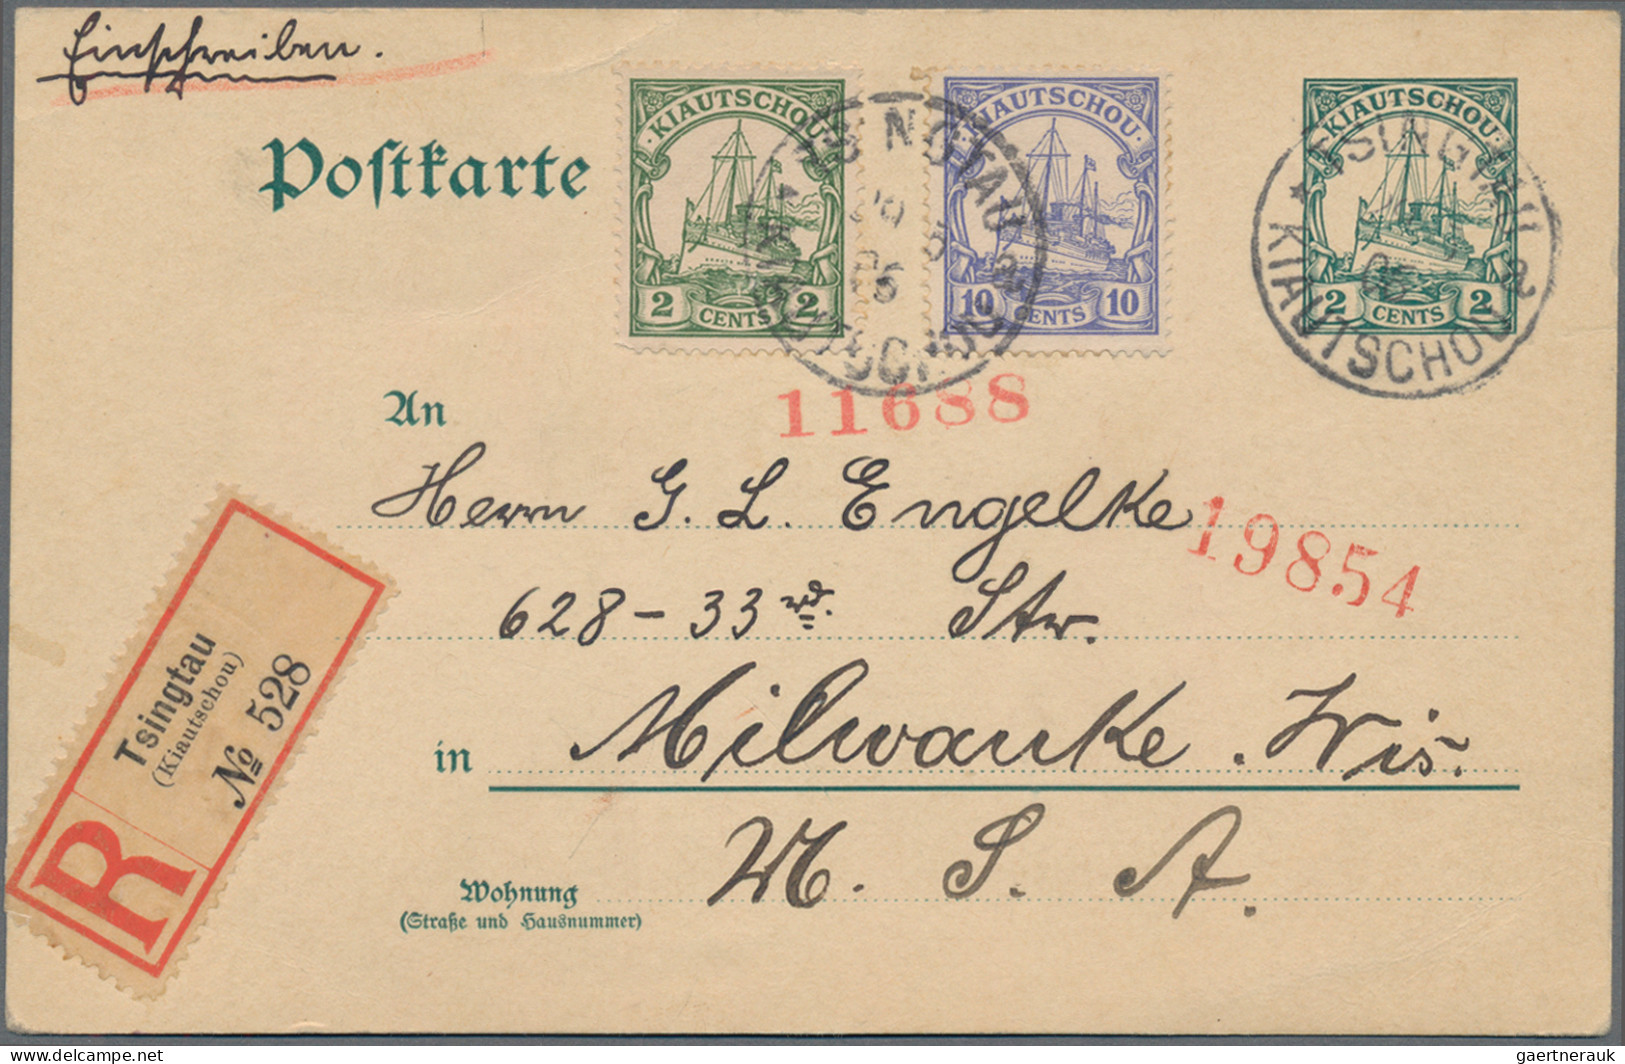 Einschreiben.
Postkarte
KIAUTSCHOU
2 2
CENTS
KIAUTSCHOU
10 10
CENTS
KIAUTSCHOU
2 2
CENTS
TSINGTAU
KIAUTSCHOU
TSINGTAU
KIAUTSCHOU
An
11688
Herrn G. L. Engelke
19854
628 – 33rd. Str.
in Milwauke. Wis.
U. S. A.
Wohnung
(Straße und Hausnummer)
Tsingtau
(Kiautschou)
№ 528
R
delcampe.net
gaertnerauk